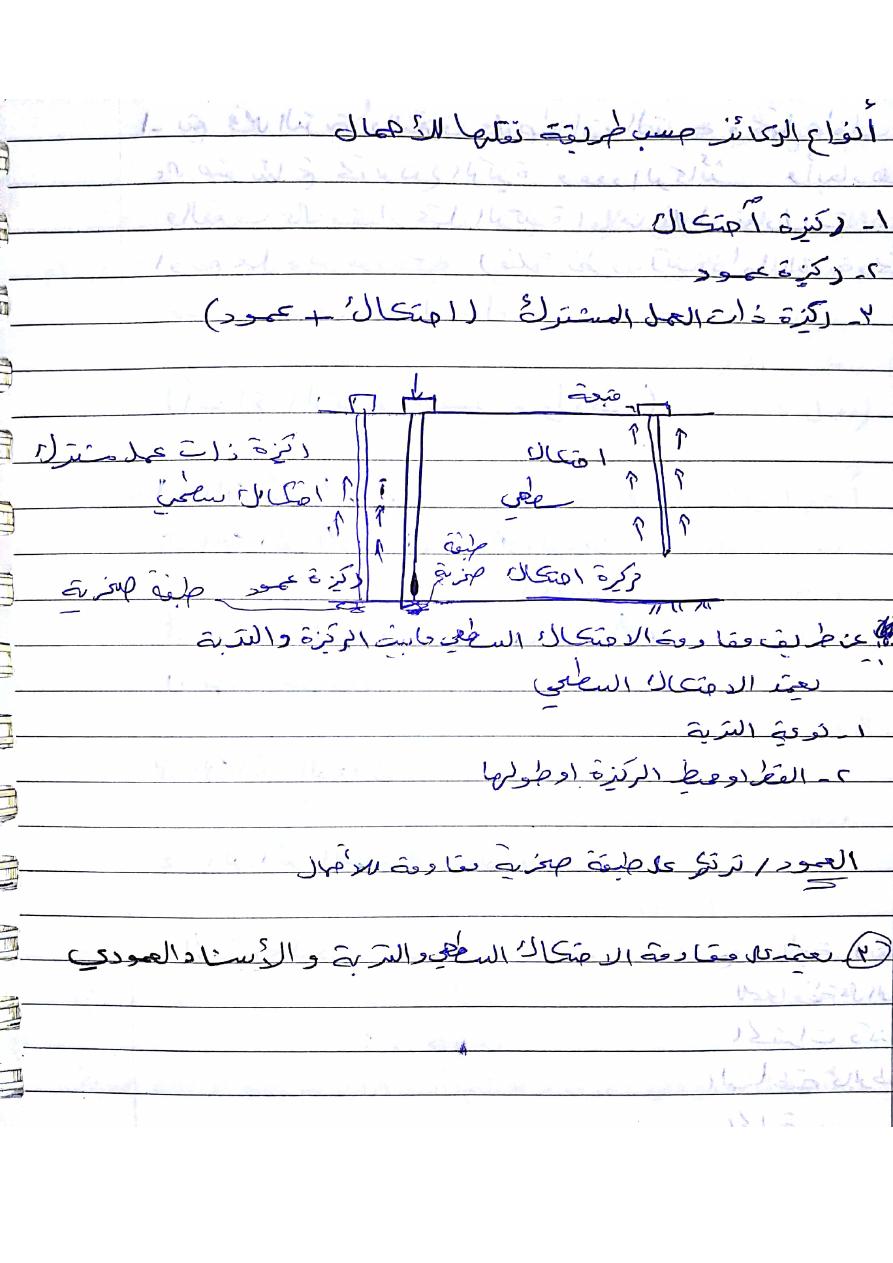 أنواع الركائز حسب طريقة نقلها للأحمال
١- ركيزة أحتكاك
٢- ركيزة عمود
٣- ركيزة ذات العمل المشترك (احتكاك + عمود)
قبعة
احتكاك
سطحي
ركيزة ذات عمل مشترك
احتكاك سطحي
طبقة
صخرية
ركيزة احتكاك
ركيزة عمود
طبقة صخرية
عن طريق مقاومة الاحتكاك السطحي مابين الركيزة والتربة
يعتمد الاحتكاك السطحي
١- نوعية التربة
٢- القطر او محيط الركيزة او طولها
العمود / ترتكز على طبقة صخرية مقاومة للأحمال
٣ يعتمد على مقاومة الاحتكاك السطحي والتربة و الأسناد العمودي